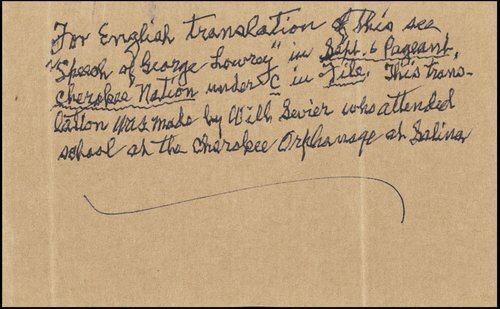 For English translation of this see
"Speech of George Lowrey" in Sept. 6 Pageant,
Cherokee Nation under C in File. This trans-
lation was made by Will Sevier who attended
school at the Cherokee Orphanage at Salina